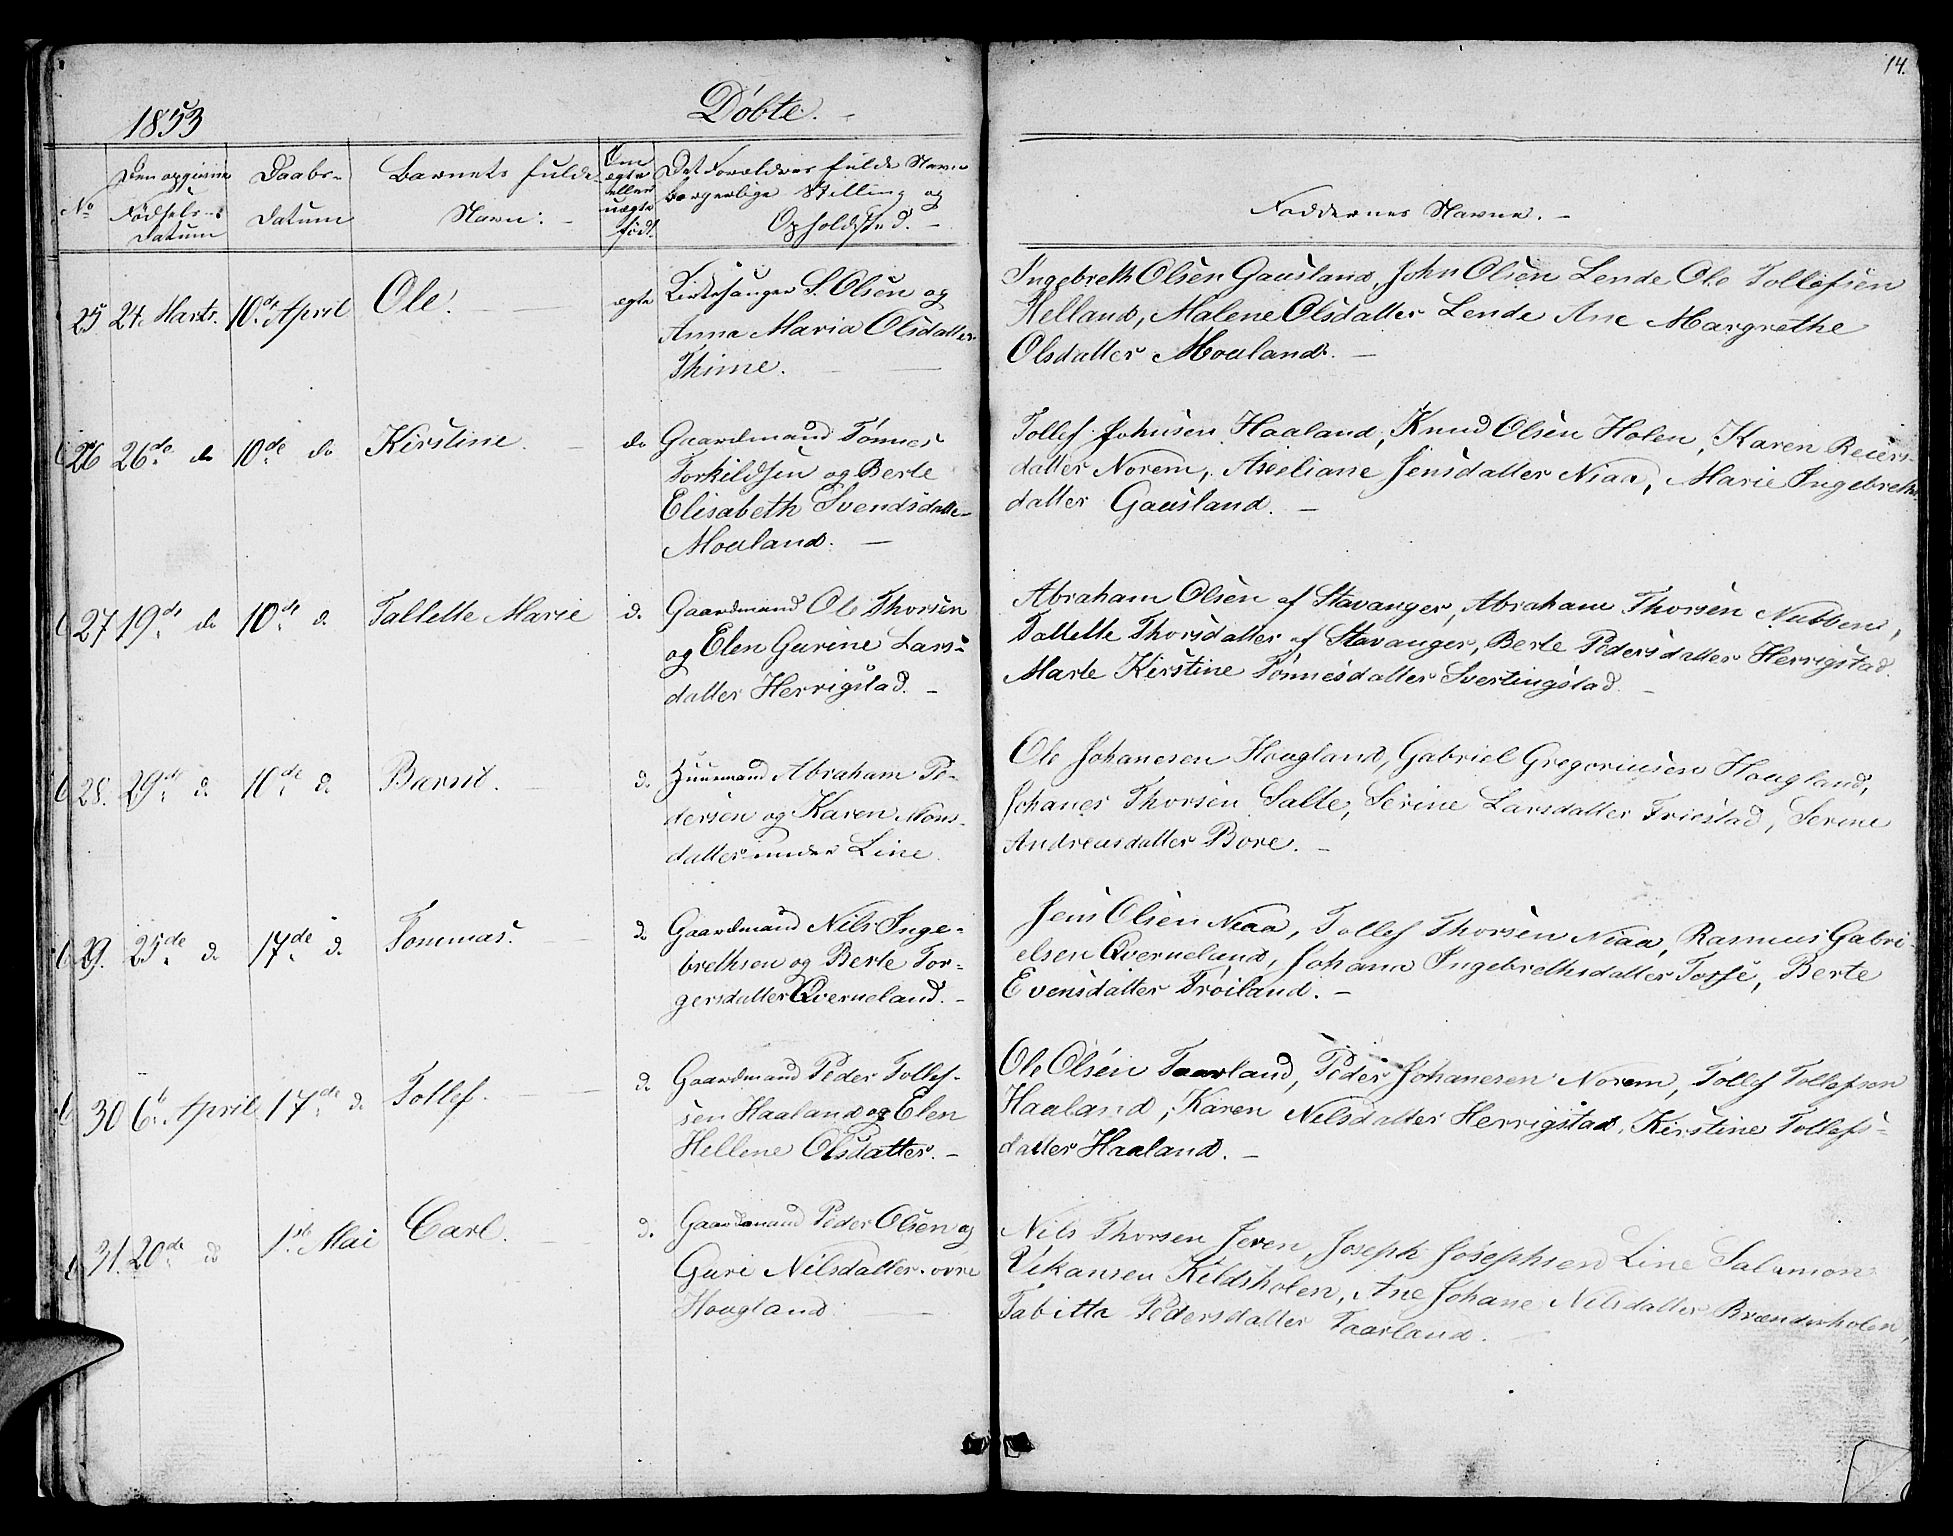 14.
1853
Döbte.
No
Den opgivne Födsels-Datum
Daabs-Datum
Barnets fulde Navn.
Om ægte eller uægte födt.
Det Forældres fulde Navn borgerlige Stilling og Opholdsted.
Faddernes Navne.
25 24. Marts. 10de April Ole. ægte Kirkesanger S. Olsen og
Anna Maria Olsdatter
Thime.
Ingebreth Olsen Gausland, John Olsen Lende Ole Tollefsen
Helland, Malene Olsdatter Lende Ane Margrethe
Olsdatter Moaland.
26 26de do 10de do Kirstine. do Gaardmand Tönnes
Torkildsen og Berte
Elisabeth Svendsdatter
Moaland.
Tollef Johnsen Haaland, Knud Olsen Holen, Karen Reiers-
datter Norem, Axeliane Jensdatter Niaa, Marie Ingebreths
datter Gausland.
27 19de do 10de d. Tallette Marie d. Gaardmand Ole Thorsen
og Elen Gurine Lars-
datter Herrigstad.
Abraham Olsen af Stavanger, Abraham Thorsen Nubben,
Tallette Thorsdatter af Stavanger, Berte Pedersdatter Herrigstad.
Marte Kirstine Tönnesdatter Svertingstad.
28. 29de d. 10de d. Barnt. d. Huusmand Abraham Pe-
dersen og Karen Mons-
datter under Line.
Ole Johanesen Hougland, Gabriel Gregoriusen Hougland,
Johanes Thorsen Salte, Serine Larsdatter Friestad, Serine
Andreasdatter Bore.
29. 25de d. 17de d. Tommas. d. Gaardmand Nils Inge-
brethsen og Berte Tor-
gersdatter Qverneland.
Jens Olsen Niaa, Tollef Thorsen Niaa, Rasmus Gabri-
elsen Qverneland, Johana Ingebrethsdatter Tosse, Berte
Evensdatter Tröiland.
30 6te April 17de d. Tollef. d. Gaardmand Peder Tollef-
sen Haaland og Elen
Hellene Olsdatter.
Ole Olsen Taarland, Peder Johanesen Norem, Tollef Tollefsen
Haaland, Karen Nilsdatter Herrigstad, Kirstine Tollefs-
datter Haaland.
31. 20de d. 1ste Mai Carl. d. Gaardmand Peder Olsen og
Guri Nilsdatter ovre
Hougland.
Nils Thorsen Jeren, Joseph Josephsen Line Salamon
Vikansen Kildsholen, Ane Johane Nilsdatter Brænderholen,
Tabitta Pedersdatter Taarland.